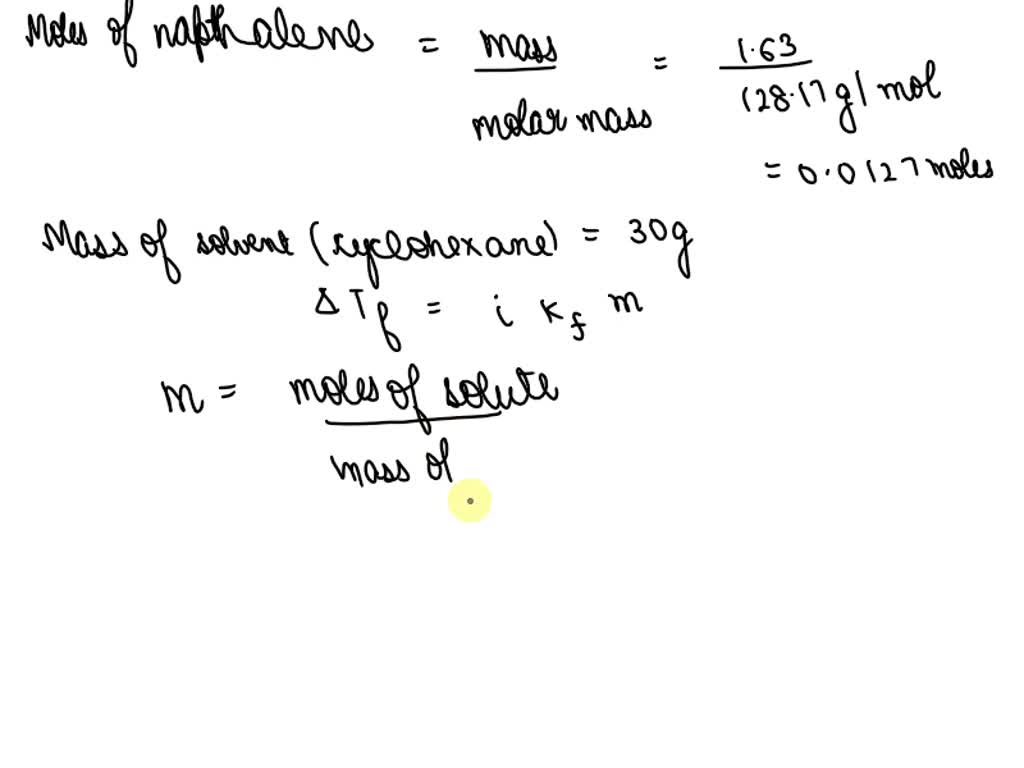 Moles of napthalene = mass / molar mass = 1.63 / 128.17 g/mol
= 0.0127 moles
Mass of solvent (cyclohexane) = 30g
ΔTf = i Kf m
m = moles of solute / mass of